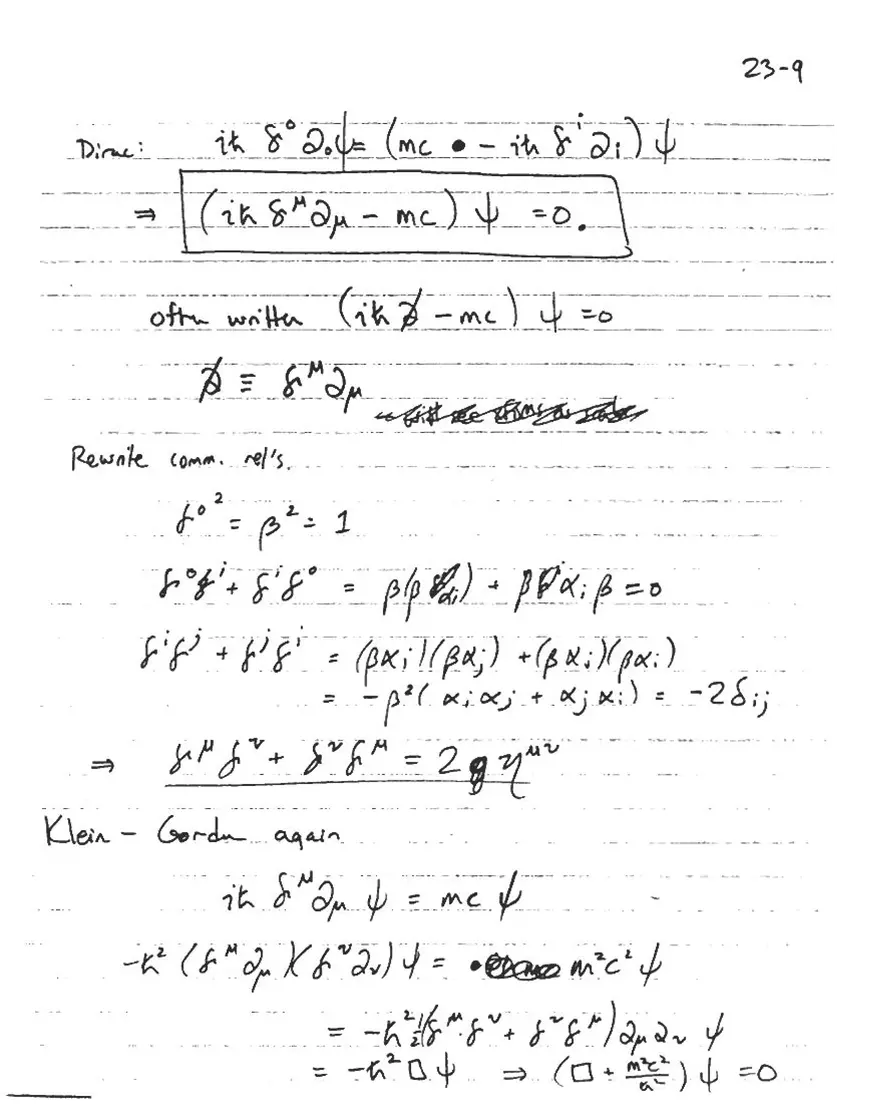 23-9
Dirac: iℏ γ⁰ ∂₀ψ = (mc • − iℏ γⁱ ∂ᵢ) ψ
⇒ (iℏ γ^μ ∂_μ − mc) ψ = 0.
often written (iℏ ∂̸ − mc) ψ = 0
∂̸ ≡ γ^μ ∂_μ
Rewrite comm. rel's.
γ⁰² = β² = 1
γ⁰γⁱ + γⁱγ⁰ = β(β αᵢ) + β αᵢ β = 0
γⁱγʲ + γʲγⁱ = (βαᵢ)(βαⱼ) + (βαⱼ)(βαᵢ)
= −β²(αᵢαⱼ + αⱼαᵢ) = −2δᵢⱼ
⇒ γ^μ γ^ν + γ^ν γ^μ = 2 η^μν
Klein − Gordon again
iℏ γ^μ ∂_μ ψ = mc ψ
−ℏ² (γ^μ ∂_μ)(γ^ν ∂_ν) ψ = m²c² ψ
= −ℏ² ½(γ^μ γ^ν + γ^ν γ^μ) ∂_μ ∂_ν ψ
= −ℏ² □ ψ ⇒ (□ + m²c²/ℏ²) ψ = 0